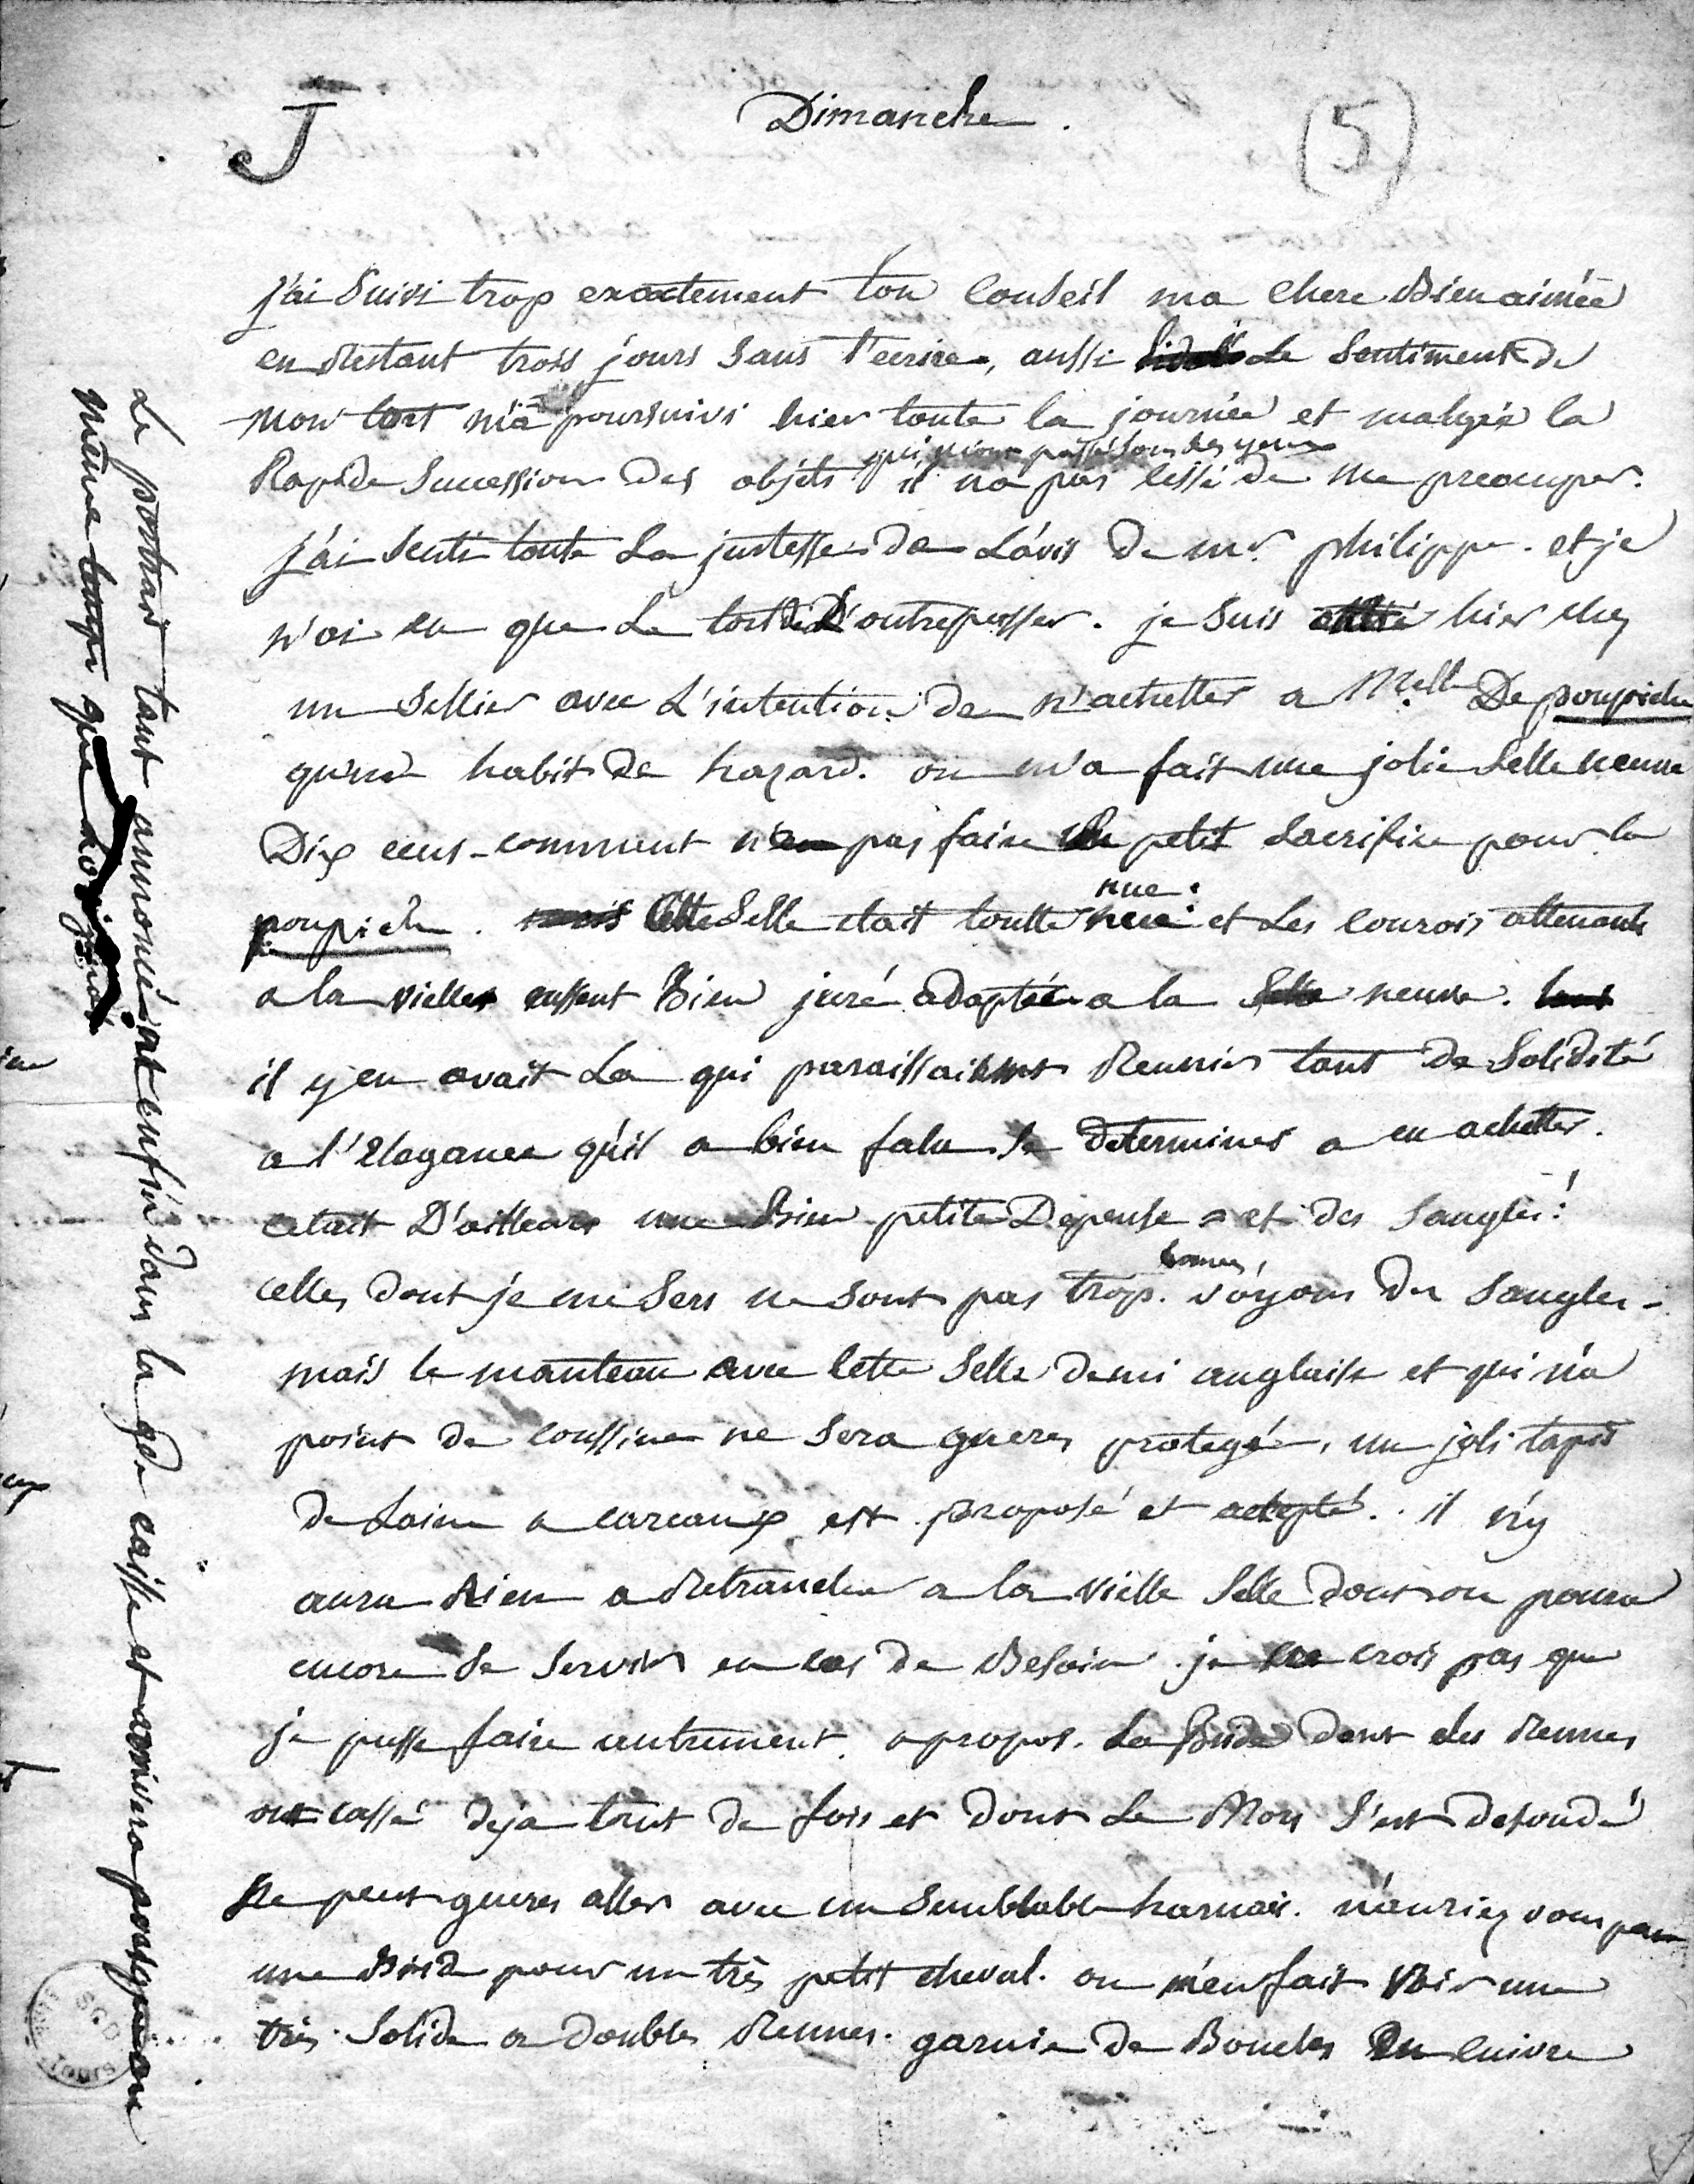 J
Dimanche.
(5)
j'ai Suivi trop exactement ton Conseil ma chere Bien aimée
en Restant trois jours sans t'ecrire, aussi Le Sentiment de
mon tort m'a poursuivi hier toute la journée et malgré la
qui m'ont passé sous les yeux
Rapide Succession des objéts il n'a pas cessé de me preocuper.
j'ai Senti toute La justesse de L'avis De mr philippe. et je
n'ai eu que Le tort de L'outrepasser. je suis hier chez
un Sellier avec L'intention de n'achetter a Melle De poupiche
qu'un habit de hazard. on m'a fait une jolie Selle neuve
Dix ecus - comment n'en pas faire un petit Sacrifice pour la
poupiche. mais Cette Selle etait toutte nue: et Les Courois attenants
nue:
a la vielle eussent Bien juré adaptée a la Selle neuve. tout
il y en avait La qui paraissaient Reunir tant de Solidité
a l'Elegance qu'il a bien falu se determiner a en achetter.
cetait D'ailleurs une Bien petite Dépense - et des Sangles!
bonnes,
celles dont je me Sers ne sont pas trop. voyons des Sangles -
mais le manteau avec Cette Selle demi anglaise et qui n'a
point de Coussinet ne Sera gueres protegé, un joli tapis
de Laine a carreaux est proposé et adopté. il n'y
aura Rien a Retrancher a la vielle Selle dont on poura
encore Se Servir en cas de Besoin. je ne crois pas que
je pusse faire autrement. apropos. La Bride dont les Rennes
ont cassé deja tant de fois et dont Le Mors S'est desoudé
Ne peut gueres aller avec un Semblable harnais. n'auriez vous pas
une Bride pour un très petit cheval. on m'en fait voir une
très Solide a doubles Rennes. garnie de Boucles en Cuivre
Le portrait tant annoncé est enfin dans la gde caisse et arrivera presqu'en
même temps que